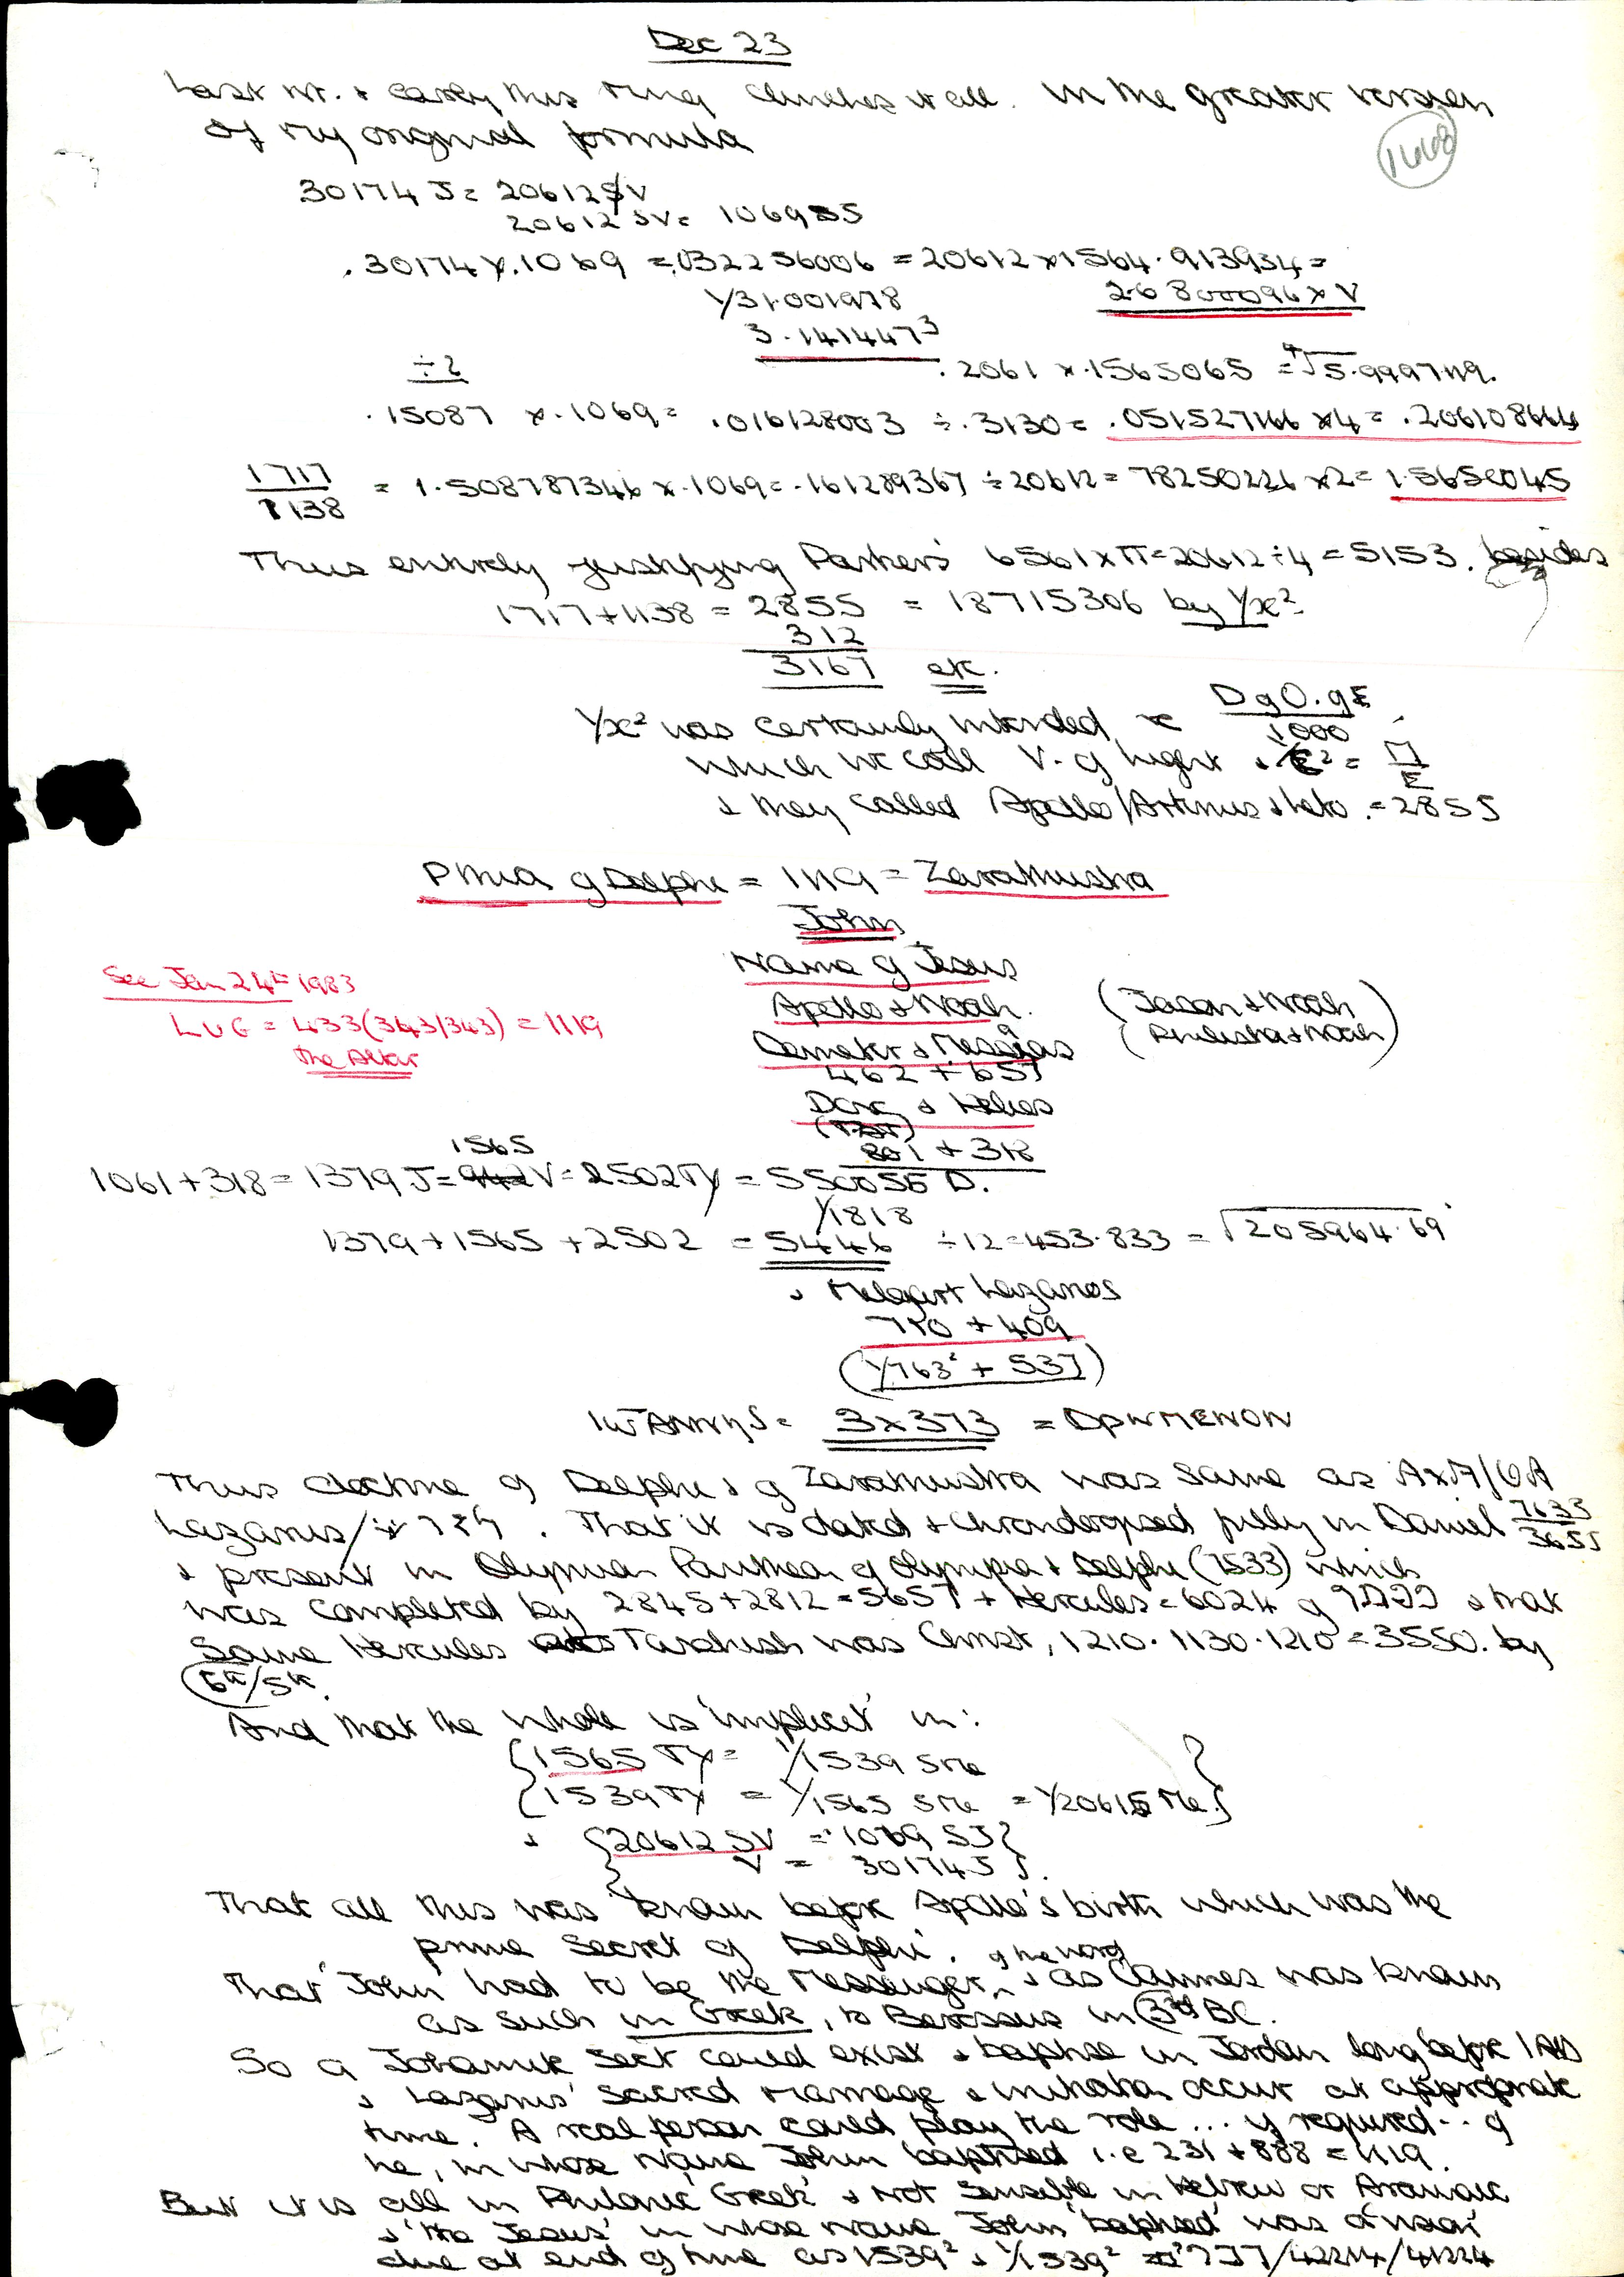 Dec 23
Last nt. & early this mng clinches it all. In the greater version
of my original formula
1668
30174 J = 20612 SV
20612 SV = 1069 SJ
.30174 x .1069 = .032256006 = 20612 x 1564.913934 =
1/31.001978
2.6800096 x V
3.141447³
÷ 2
.2061 x .1565065 = ⁴√5.999749.
.15087 x .1069 = .016128003 ÷ .3130 = .051527166 x 4 = .206108664
1717/1138 = 1.508787346 x .1069 = .161289367 ÷ 20612 = 78250226 x 2 = 1.5650045
Thus entirely justifying Parker's 6561 x π = 20612 ÷ 4 = 5153. besides
1717 + 1138 = 2855 = 18715306 by 1/x².
312
3167 etc.
1/x² was certainly intended
D of O. of E / 1000
which we call V. of light
& they called Apollo/Artimus & Leto. = 2855
Pythia of Delphi = 1119 = Zarathustra
John
Name of Jesus
See Jan 24th 1983
Apollo & Noah. (Jason & Noah
LUG = 433 (343/343) = 1119
Demeter & Messias
the Altar
462 + 657
& Helios
801 + 318
1565
1061 + 318 = 1379 J = V = 2502 Ty = 55005E D.
1/1818
1379 + 1565 + 2502 = 5446 ÷ 12 = 453.833 = √205964.69
& Melqart Lazaros
710 + 409
(1/763² + 537)
ΙωΑΝΝηS = 3 x 373 = DρωΜΕΝΟΝ
Thus doctrine of Delphi & of Zarathustra was same as
Lazarus/ . That it is dated & chronologised fully in Daniel 7633/3655
& present in Olympian Pantheon of Olympia & Delphi (7533) which
was completed by 2845 + 2812 = 5657 + Hercules = 6024 of & that
Same Hercules Tarshish was Christ, 1210 . 1130 . 1210 = 3550. by
6th/5th.
And that the whole is 'implicit' in:
{1565 Ty = 1/1539 SMe}
{1539 Ty = 1/1565 SMe = 1/20615 Me}
& {20612 SV = 1069 SJ}
{V = 30174 J}.
That all this was known before Apollo's birth which was the
prime secret of Delphi.
That 'John' had to be the Messenger of the word & as Oannes was known
as such in Greek, to Berossus in 3rd BC.
So a Johannic Sect could exist & baptise in Jordan long before 1 AD
& Lazarus' sacred marriage & initiation occur at appropriate
time. A real person could play the role ... if required ... of
he, in whose name John baptised i.e 231 + 888 = 1119.
But it is all in 'Philonic Greek' & not sensible in Hebrew or Aramaic
& 'the Jesus' in whose name John 'baptised' was a 'vision'
due at end of time as 1539² & 1/1539² /42214/41224